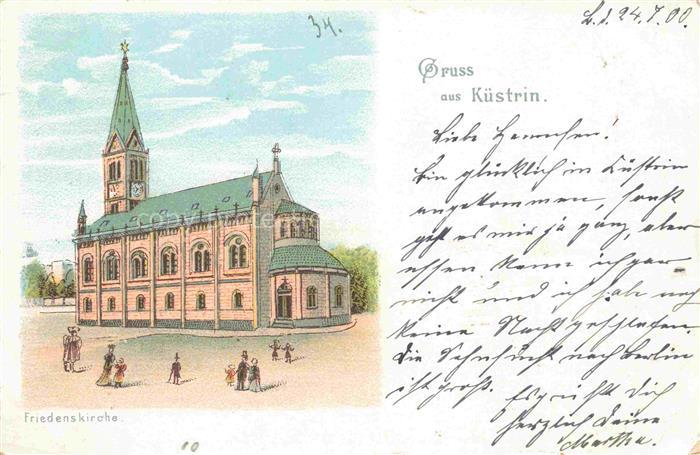 34.
24.7.00.
Gruss
aus Küstrin.
Liebe
bin glücklich in Küstrin
angekommen, sonst
geht es mir ja ganz, aber
essen kann ich gar
nicht und ich hab noch
keine Nacht geschlafen.
Die Sehnsucht nach Berlin
ist groß.
Es grüßt Dich
herzlich Deine
Martha.
Friedenskirche.
10